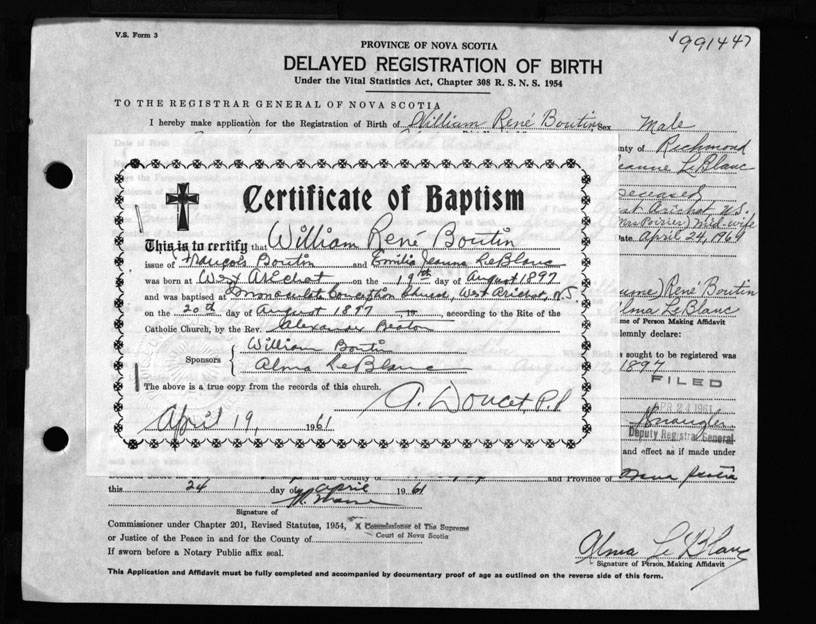 V.S. Form 3
991447
PROVINCE OF NOVA SCOTIA
DELAYED REGISTRATION OF BIRTH
Under the Vital Statistics Act, Chapter 308 R. S. N. S. 1954
TO THE REGISTRAR GENERAL OF NOVA SCOTIA
I hereby make application for the Registration of Birth of William René Boutin, Sex Male
ty of Richmond
Jeanne LeBlanc
Deceased
st Arichat N.S.
(Mrs Poirier) Mid-wife
Date April 24, 1961
Certificate of Baptism
This is to certify that William René Boutin
issue of François Boutin and Emilia Jeanne LeBlanc
was born at West Arichat on the 19th day of August 1897
and was baptised at Immaculate Conception Church, West Arichat, N.S.
on the 20th day of August 1897 19 , according to the Rite of the
Catholic Church, by the Rev. Alexander Beaton
Sponsors
William Boutin
Alma LeBlanc
The above is a true copy from the records of this church.
A. Doucet, P.P.
April 19, 1961
René Boutin
lma LeBlanc
me of Person Making Affidavit
lemnly declare:
sought to be registered was
1897
FILED
APR 24 1961
Deputy Registrar General
and effect as if made under
and Province of Nova Scotia
this 24 day of April 1961
Signature of
Commissioner under Chapter 201, Revised Statutes, 1954, X Commissioner of The Supreme
Court of Nova Scotia
or Justice of the Peace in and for the County of
If sworn before a Notary Public affix seal.
Alma LeBlanc
Signature of Person Making Affidavit
This Application and Affidavit must be fully completed and accompanied by documentary proof of age as outlined on the reverse side of this form.